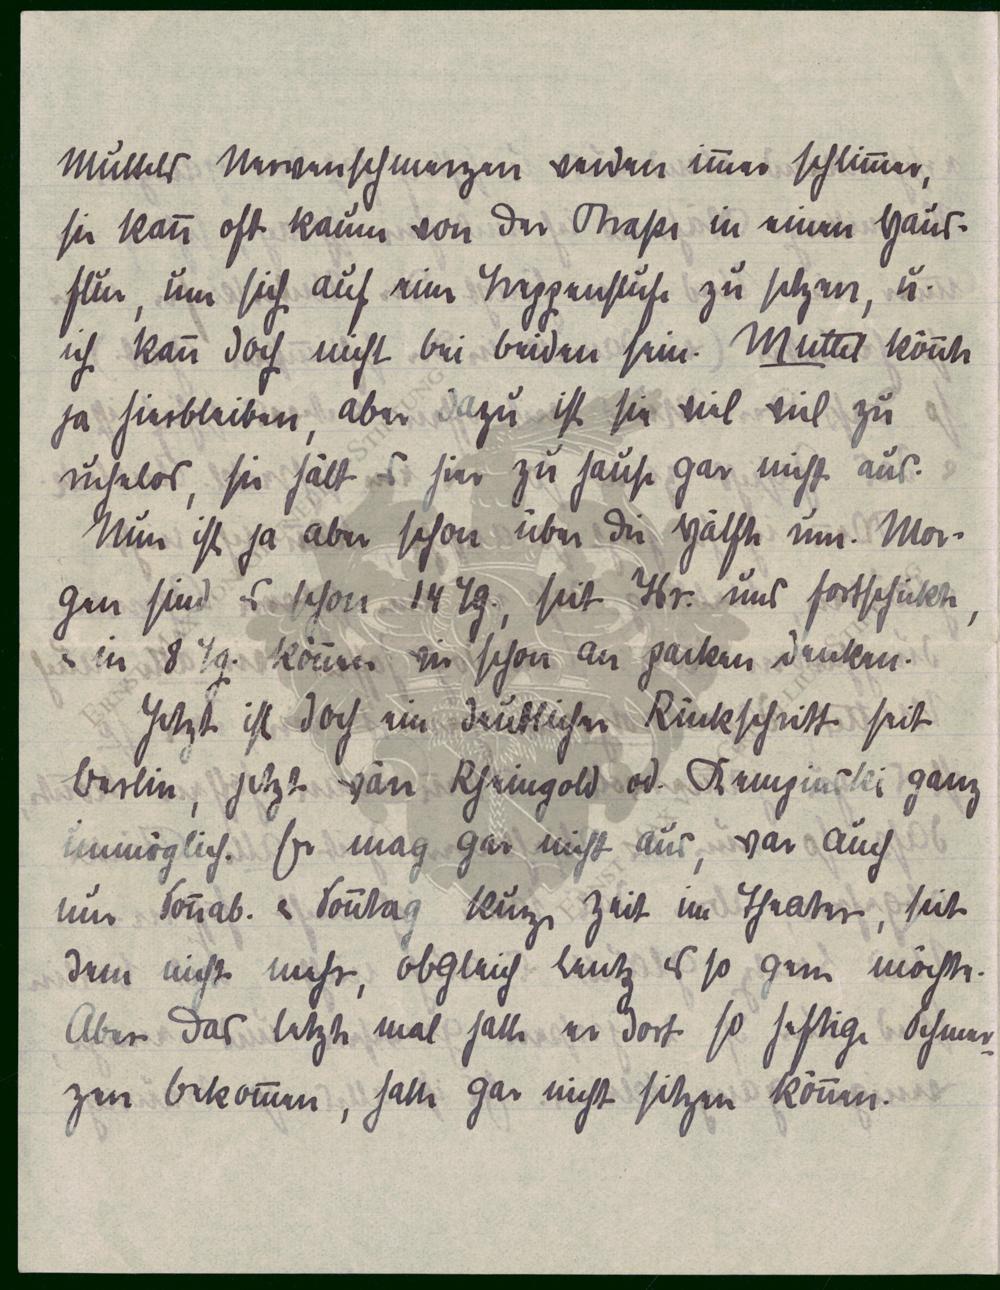 Muttels Nervenschmerzen werden im̅er schlim̅er,
sie kan̅ oft kaum von der Straße in einen Haus-
flur, um sich auf eine Treppenstufe zu setzen, u.
ich kan̅ doch nicht bei beiden sein. Muttel kön̅te
ja hierbleiben, aber dazu ist sie viel viel zu
ruhelos, sie hält es hier zu hause gar nicht aus.
Nun ist ja aber schon über die Hälfte um. Mor-
gen sind es schon 14 Tg., seit Kr. uns fortschickte,
& in 8 Tg. kön̅en wir schon an packen denken.
Jetzt ist doch ein deutlicher Rückschritt seit
Berlin, jetzt wäre Rheingold od. Kempinski ganz
unmöglich. Er mag gar nicht aus, war auch
nur Son̅ab. & Son̅tag kurze Zeit im Theater, seit
dem nicht mehr, obgleich Lentz es so gern möchte.
Aber das letzte mal hatte er dort so heftige Schmer-
zen bekom̅en, hatte gar nicht sitzen kön̅en.
ERNST STIFTUNG